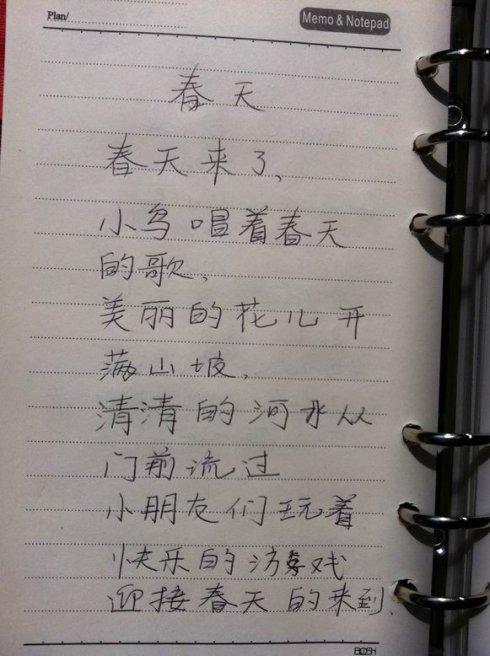 Plan/
Memo & Notepad
春天
春天来了、
小鸟唱着春天
的歌、
美丽的花儿开
满山坡、
清清的河水从
门前流过
小朋友们玩着
快乐的游戏
迎接春天的来到、